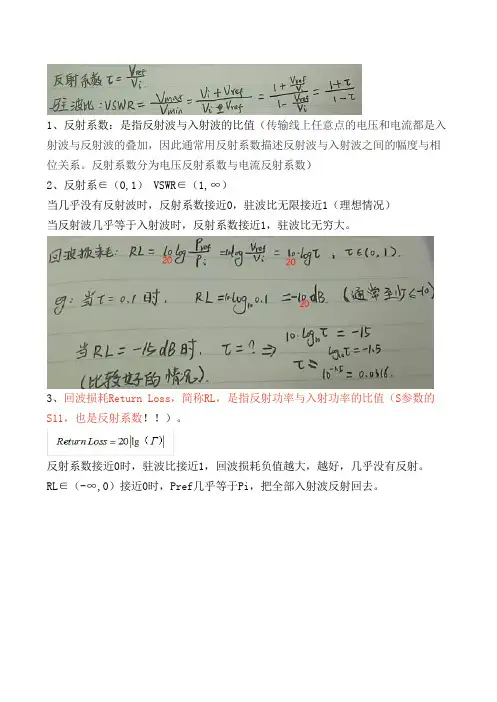 反射系数 τ = Vref/Vi
驻波比:VSWR = Vmax/Vmin = (Vi+Vref)/(Vi-Vref) = (1+Vref/Vi)/(1-Vref/Vi) = (1+τ)/(1-τ)
1、反射系数：是指反射波与入射波的比值（传输线上任意点的电压和电流都是入
射波与反射波的叠加，因此通常用反射系数描述反射波与入射波之间的幅度与相
位关系。反射系数分为电压反射系数与电流反射系数）
2、反射系∈（0,1） VSWR∈（1,∞）
当几乎没有反射波时，反射系数接近0，驻波比无限接近1（理想情况）
当反射波几乎等于入射波时，反射系数接近1，驻波比无穷大。
回波损耗: RL = 10log Pref/Pi = 10log Vref/Vi = 10·logτ , τ∈(0,1).
20 20
eg: 当τ=0.1时. RL=10log₁₀0.1 = -10dB. (通常至少≤-10)
20
当RL=-15dB时. τ=? ⇒ 10·log₁₀τ = -15
log₁₀τ = -1.5
(比较好的情况). τ= 10^-1.5 = 0.0316.
3、回波损耗Return Loss，简称RL，是指反射功率与入射功率的比值（S参数的
S11，也是反射系数！！）。
Return Loss = 20|lg（Γ）|
反射系数接近0时，驻波比接近1，回波损耗负值越大，越好，几乎没有反射。
RL∈（-∞,0）接近0时，Pref几乎等于Pi，把全部入射波反射回去。